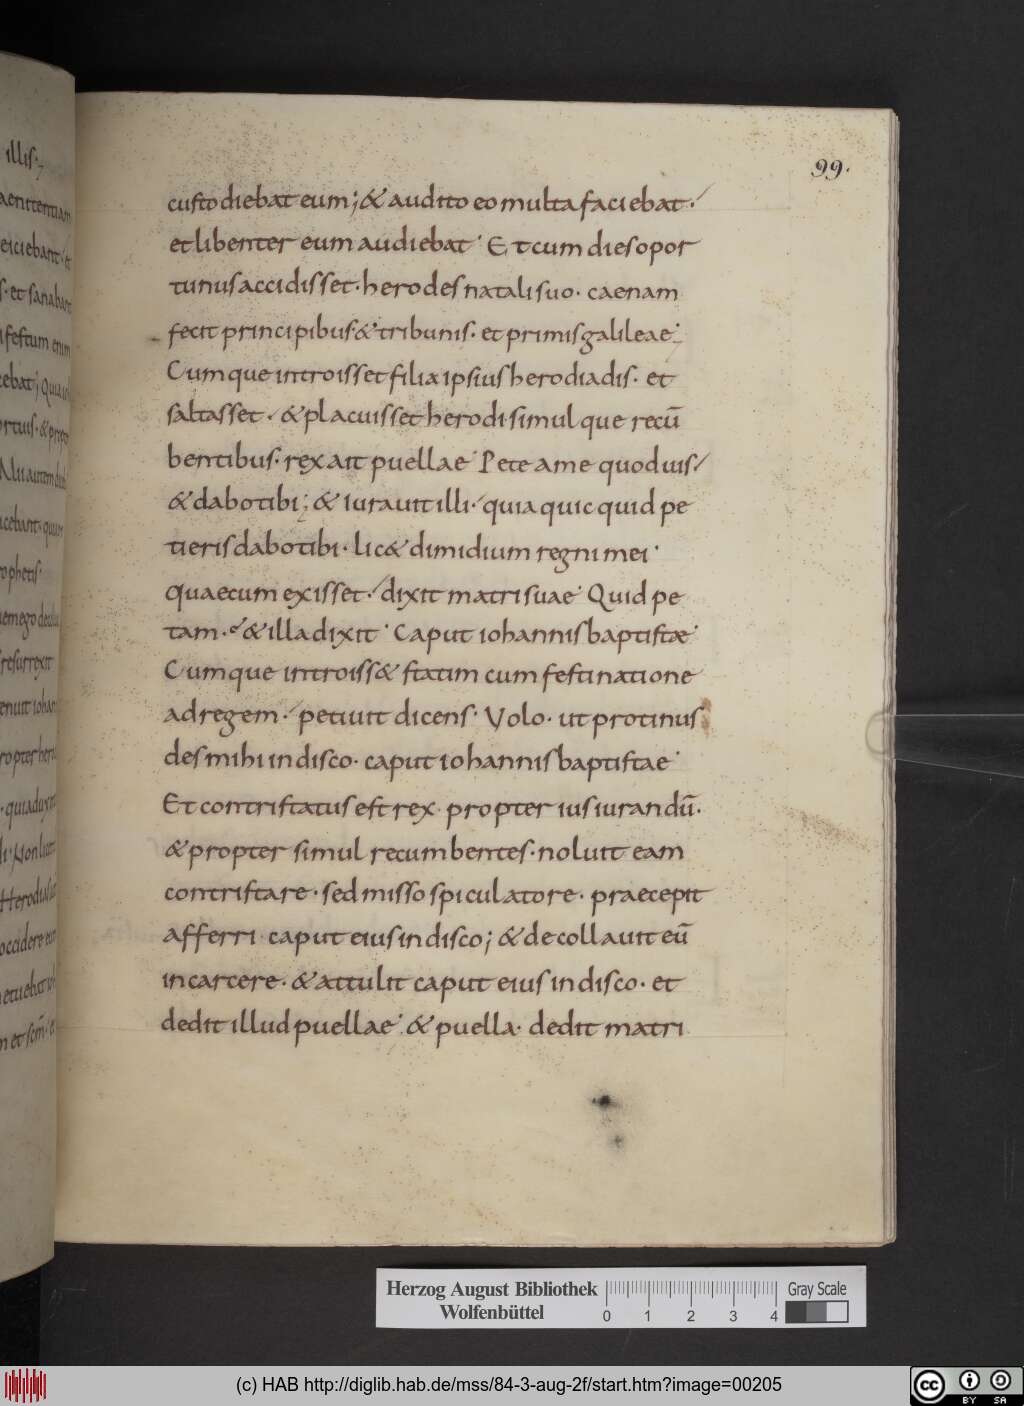 99.
custodiebat eum; & audito eo multa faciebat.
et libenter eum audiebat. Et cum dies opor
tunus accidisset. herodes natali suo. caenam
fecit principibus. & tribunis. et primis galileae.
Cumque introisset filia ipsius herodiadis. et
saltasset. & placuisset herodi. simulque recū
bentibus. rex ait puellae. Pete a me quod uis.
& dabo tibi; & iurauit illi. quia quicquid pe
tieris dabo tibi. lic& dimidium regni mei.
Quae cum exisset. dixit matri suae. Quid pe
tam. & illa dixit. Caput iohannis baptistæ.
Cumque introiss& statim cum festinatione
ad regem. petiuit dicens. Volo. ut protinus
des mihi in disco. caput iohannis baptistae.
Et contristatus est rex. propter iusiurandū.
& propter simul recumbentes. noluit eam
contristare. sed misso spiculatore. praecepit
afferri caput eius in disco; & decollauit eū
in carcere. & attulit caput eius in disco. et
dedit illud puellae. & puella. dedit matri
illis.
eiciebant. et
et sanabant
Herzog August Bibliothek
Wolfenbüttel
0 1 2 3 4
Gray Scale
(c) HAB http://diglib.hab.de/mss/84-3-aug-2f/start.htm?image=00205
cc BY SA